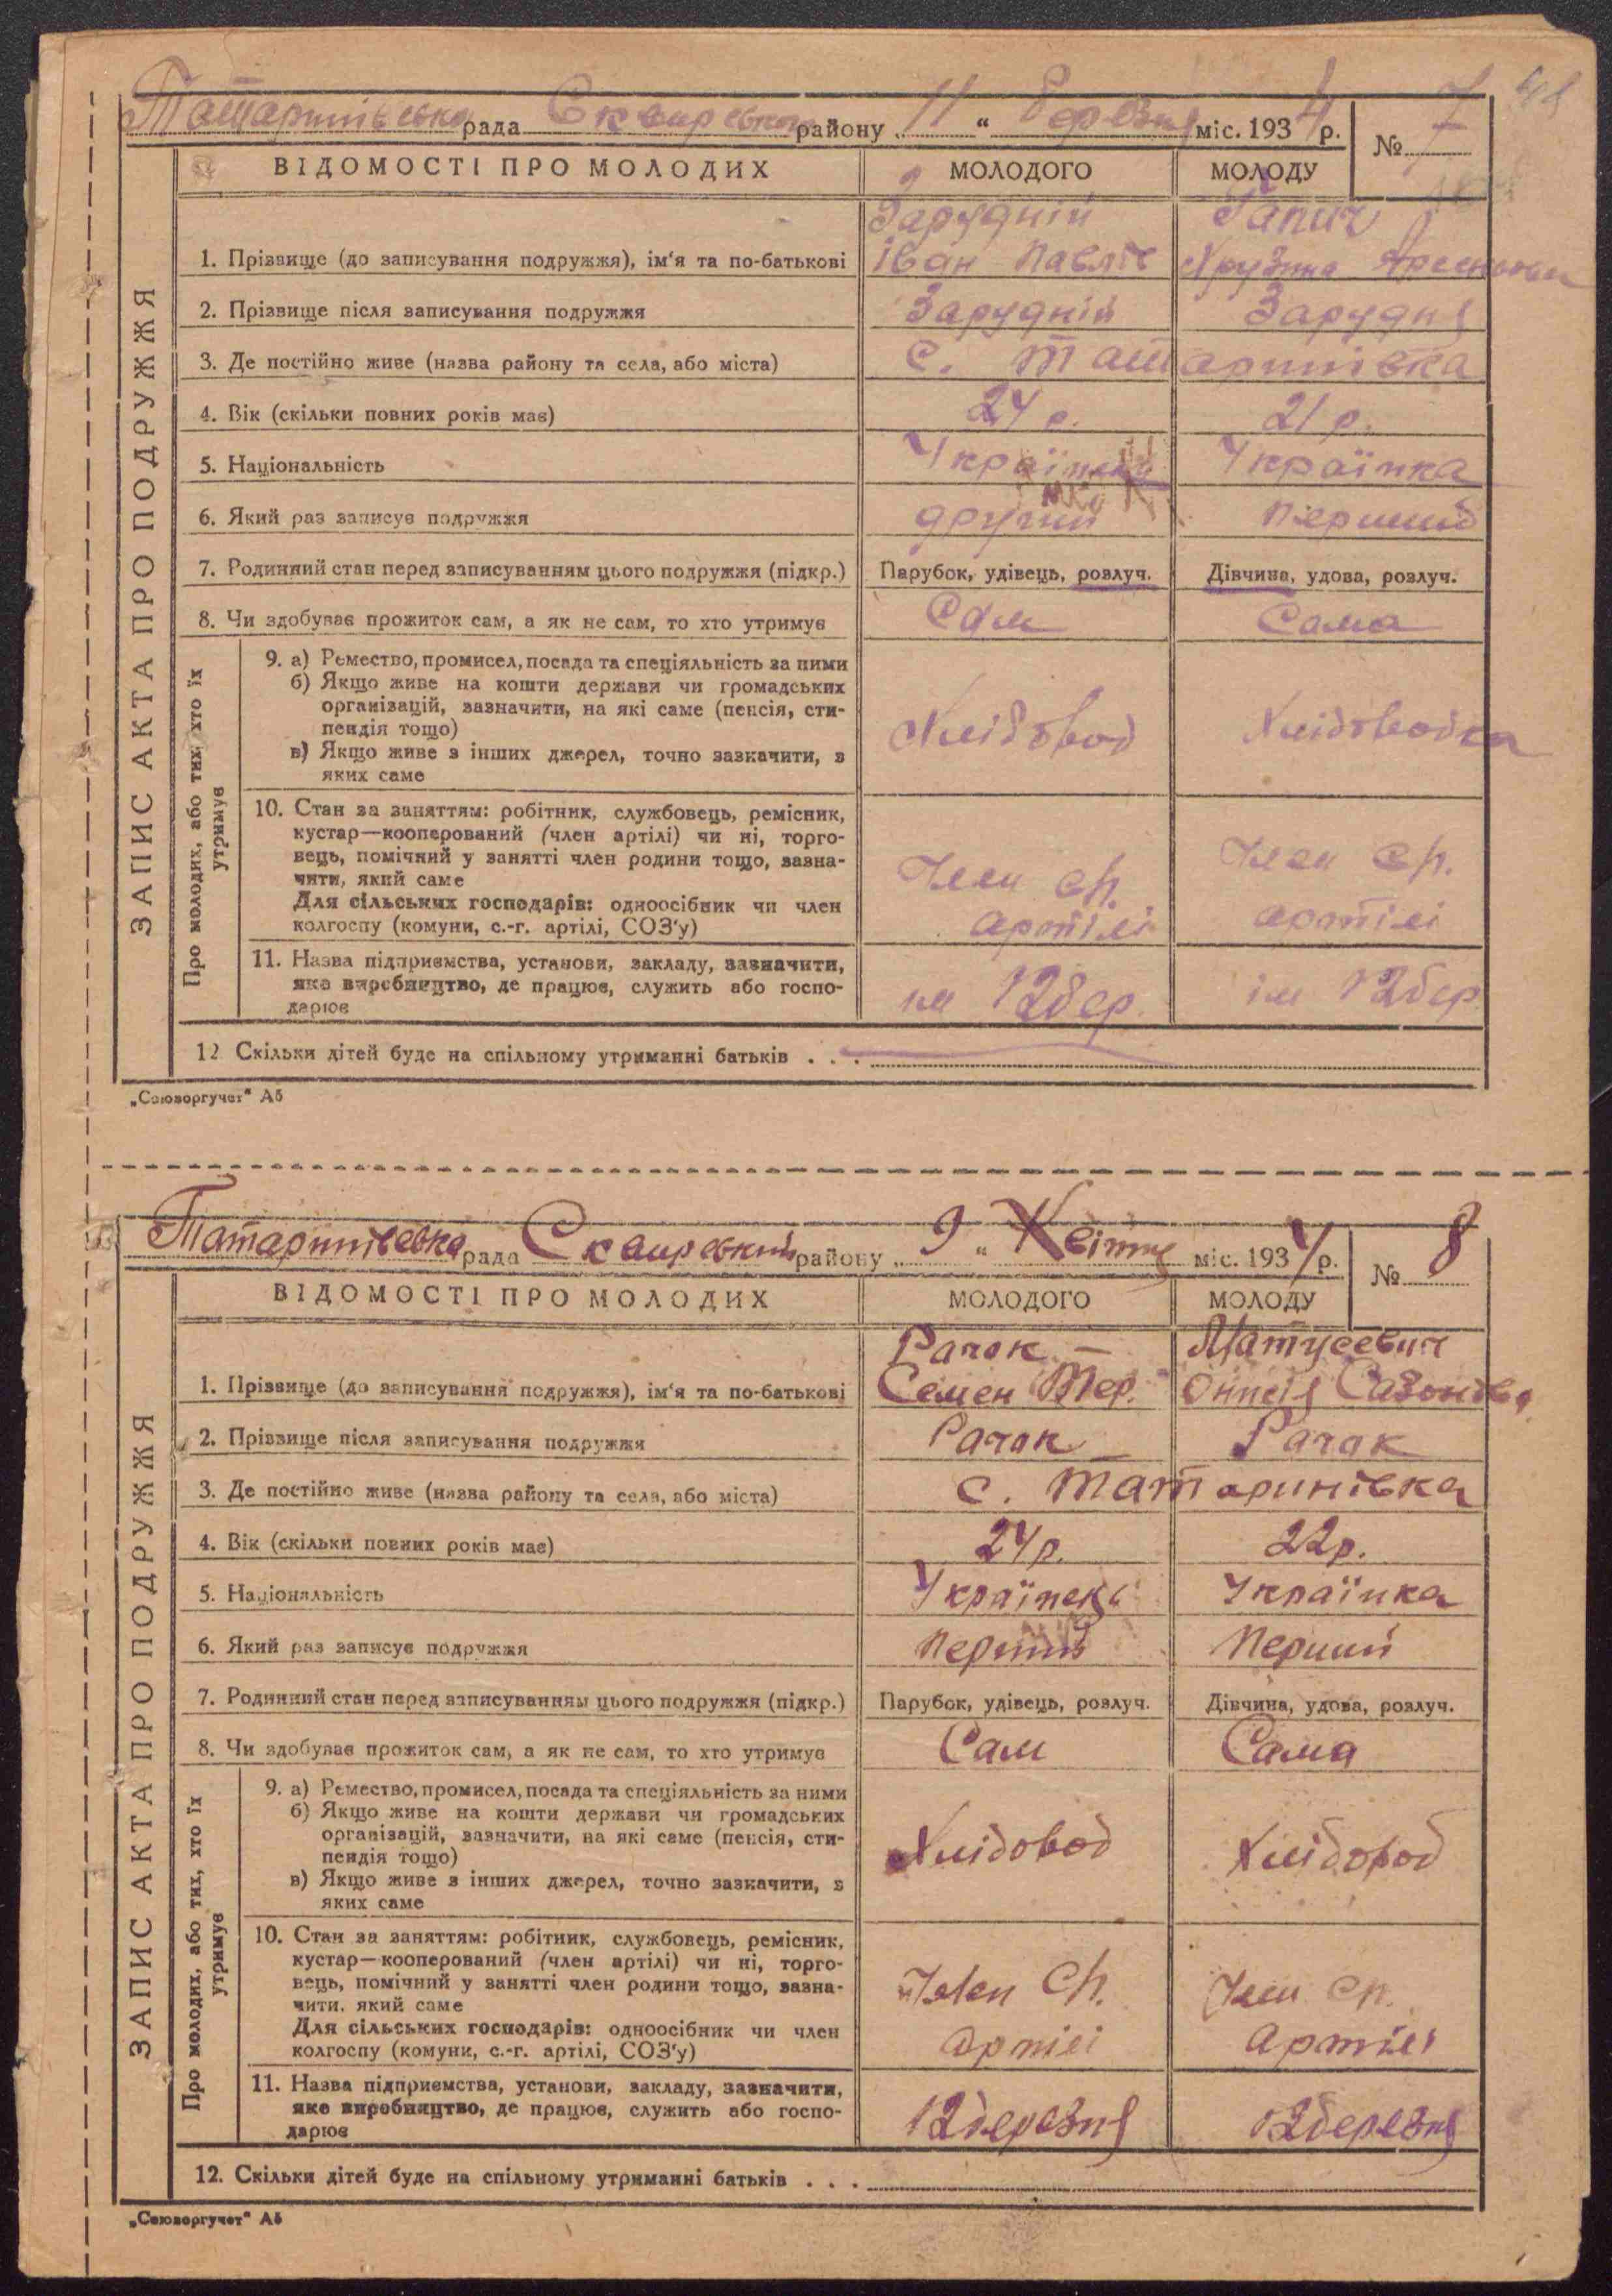 Татаринівська рада Сквирського району „ 11 “ Березня міс. 1934 р. № 7
ВІДОМОСТІ ПРО МОЛОДИХ МОЛОДОГО МОЛОДУ
ЗАПИС АКТА ПРО ПОДРУЖЖЯ
Зарудній Гапич
1. Прізвище (до записування подружжя), ім'я та по-батькові Іван Павл.
2. Прізвище після записування подружжя Зарудній Зарудня
3. Де постійно живе (назва району та села, або міста) с. Татаринівка
4. Вік (скільки повних років має) 24 р. 21 р.
5. Національність Українка
6. Який раз записує подружжя другий перший
7. Родинний стан перед записуванням цього подружжя (підкр.) Парубок, удівець, розлуч. Дівчина, удова, розлуч.
8. Чи здобуває прожиток сам, а як не сам, то хто утримує Сам Сама
Про молодих, або тих, хто їх утримує
9. а) Ремество, промисел, посада та спеціяльність за ними
б) Якщо живе на кошти держави чи громадських
організацій, зазначити, на які саме (пенсія, сти-
пендія тощо)
в) Якщо живе з інших джерел, точно зазначити, з
яких саме
Хлібовод Хлібоводка
10. Стан за заняттям: робітник, службовець, ремісник,
кустар—кооперований (член артілі) чи ні, торго-
вець, помічний у занятті член родини тощо, зазна-
чити, який саме
Для сільських господарів: одноосібник чи член
колгоспу (комуни, с.-г. артілі, СОЗ'у)
Член ср. Член ср.
артілі артілі
11. Назва підприємства, установи, закладу, зазначити,
яке виробництво, де працює, служить або госпо-
дарює
ім 12 бер. ім 12 бер.
12. Скільки дітей буде на спільному утриманні батьків . . .
„Союзоргучет“ А5
Татаринівська рада Сквирський району „ 9 “ Квітня міс. 1934 р. № 8
ВІДОМОСТІ ПРО МОЛОДИХ МОЛОДОГО МОЛОДУ
ЗАПИС АКТА ПРО ПОДРУЖЖЯ
Рачок Матусевич
1. Прізвище (до записування подружжя), ім'я та по-батькові Семен Тер. Сазонівна
2. Прізвище після записування подружжя Рачок Рачок
3. Де постійно живе (назва району та села, або міста) с. Татаринівка
4. Вік (скільки повних років має) 24 р. 22 р.
5. Національність Українка
6. Який раз записує подружжя перший перший
7. Родинний стан перед записуванням цього подружжя (підкр.) Парубок, удівець, розлуч. Дівчина, удова, розлуч.
8. Чи здобуває прожиток сам, а як не сам, то хто утримує Сам Сама
Про молодих, або тих, хто їх утримує
9. а) Ремество, промисел, посада та спеціяльність за ними
б) Якщо живе на кошти держави чи громадських
організацій, зазначити, на які саме (пенсія, сти-
пендія тощо)
в) Якщо живе з інших джерел, точно зазначити, з
яких саме
Хлібовод Хлібовод
10. Стан за заняттям: робітник, службовець, ремісник,
кустар—кооперований (член артілі) чи ні, торго-
вець, помічний у занятті член родини тощо, зазна-
чити, який саме
Для сільських господарів: одноосібник чи член
колгоспу (комуни, с.-г. артілі, СОЗ'у)
Член ср. Член ср.
артілі артілі
11. Назва підприємства, установи, закладу, зазначити,
яке виробництво, де працює, служить або госпо-
дарює
12 березня 12 березня
12. Скільки дітей буде на спільному утриманні батьків . . .
„Союзоргучет“ А5